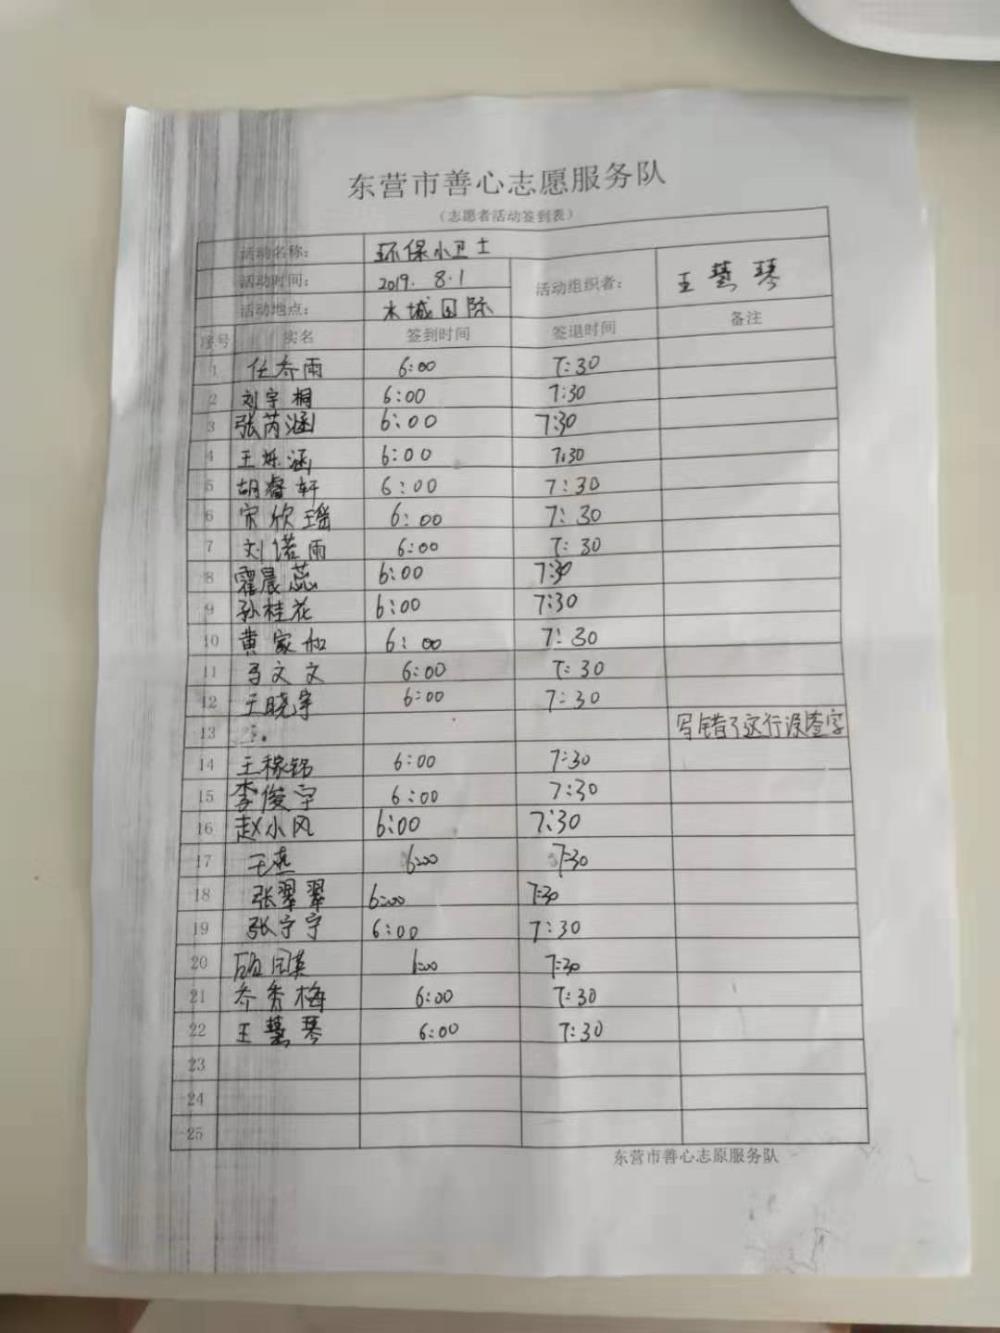 东营市善心志愿服务队
（志愿者活动签到表）
活动名称： 环保小卫士
活动时间： 2019. 8.1 活动组织者： 王慧琴
活动地点： 水城国际
序号 实名 签到时间 签退时间 备注
1 任乔雨 6:00 7:30
2 刘宇桐 6:00 7:30
3 张芮涵 6:00 7:30
4 王烁涵 6:00 7:30
5 胡睿轩 6:00 7:30
6 宋欣瑶 6:00 7:30
7 刘诺雨 6:00 7:30
8 霍晨蕊 6:00 7:30
9 孙桂花 6:00 7:30
10 黄家和 6:00 7:30
11 马文文 6:00 7:30
12 王晓宇 6:00 7:30
13 写错了这行没签字
14 王稼铭 6:00 7:30
15 李俊宇 6:00 7:30
16 赵小风 6:00 7:30
17 王燕 6:00 7:30
18 张翠翠 6:00 7:30
19 张宁宁 6:00 7:30
20 6:00 7:30
21 乔秀梅 6:00 7:30
22 王慧琴 6:00 7:30
23
24
25
东营市善心志愿服务队